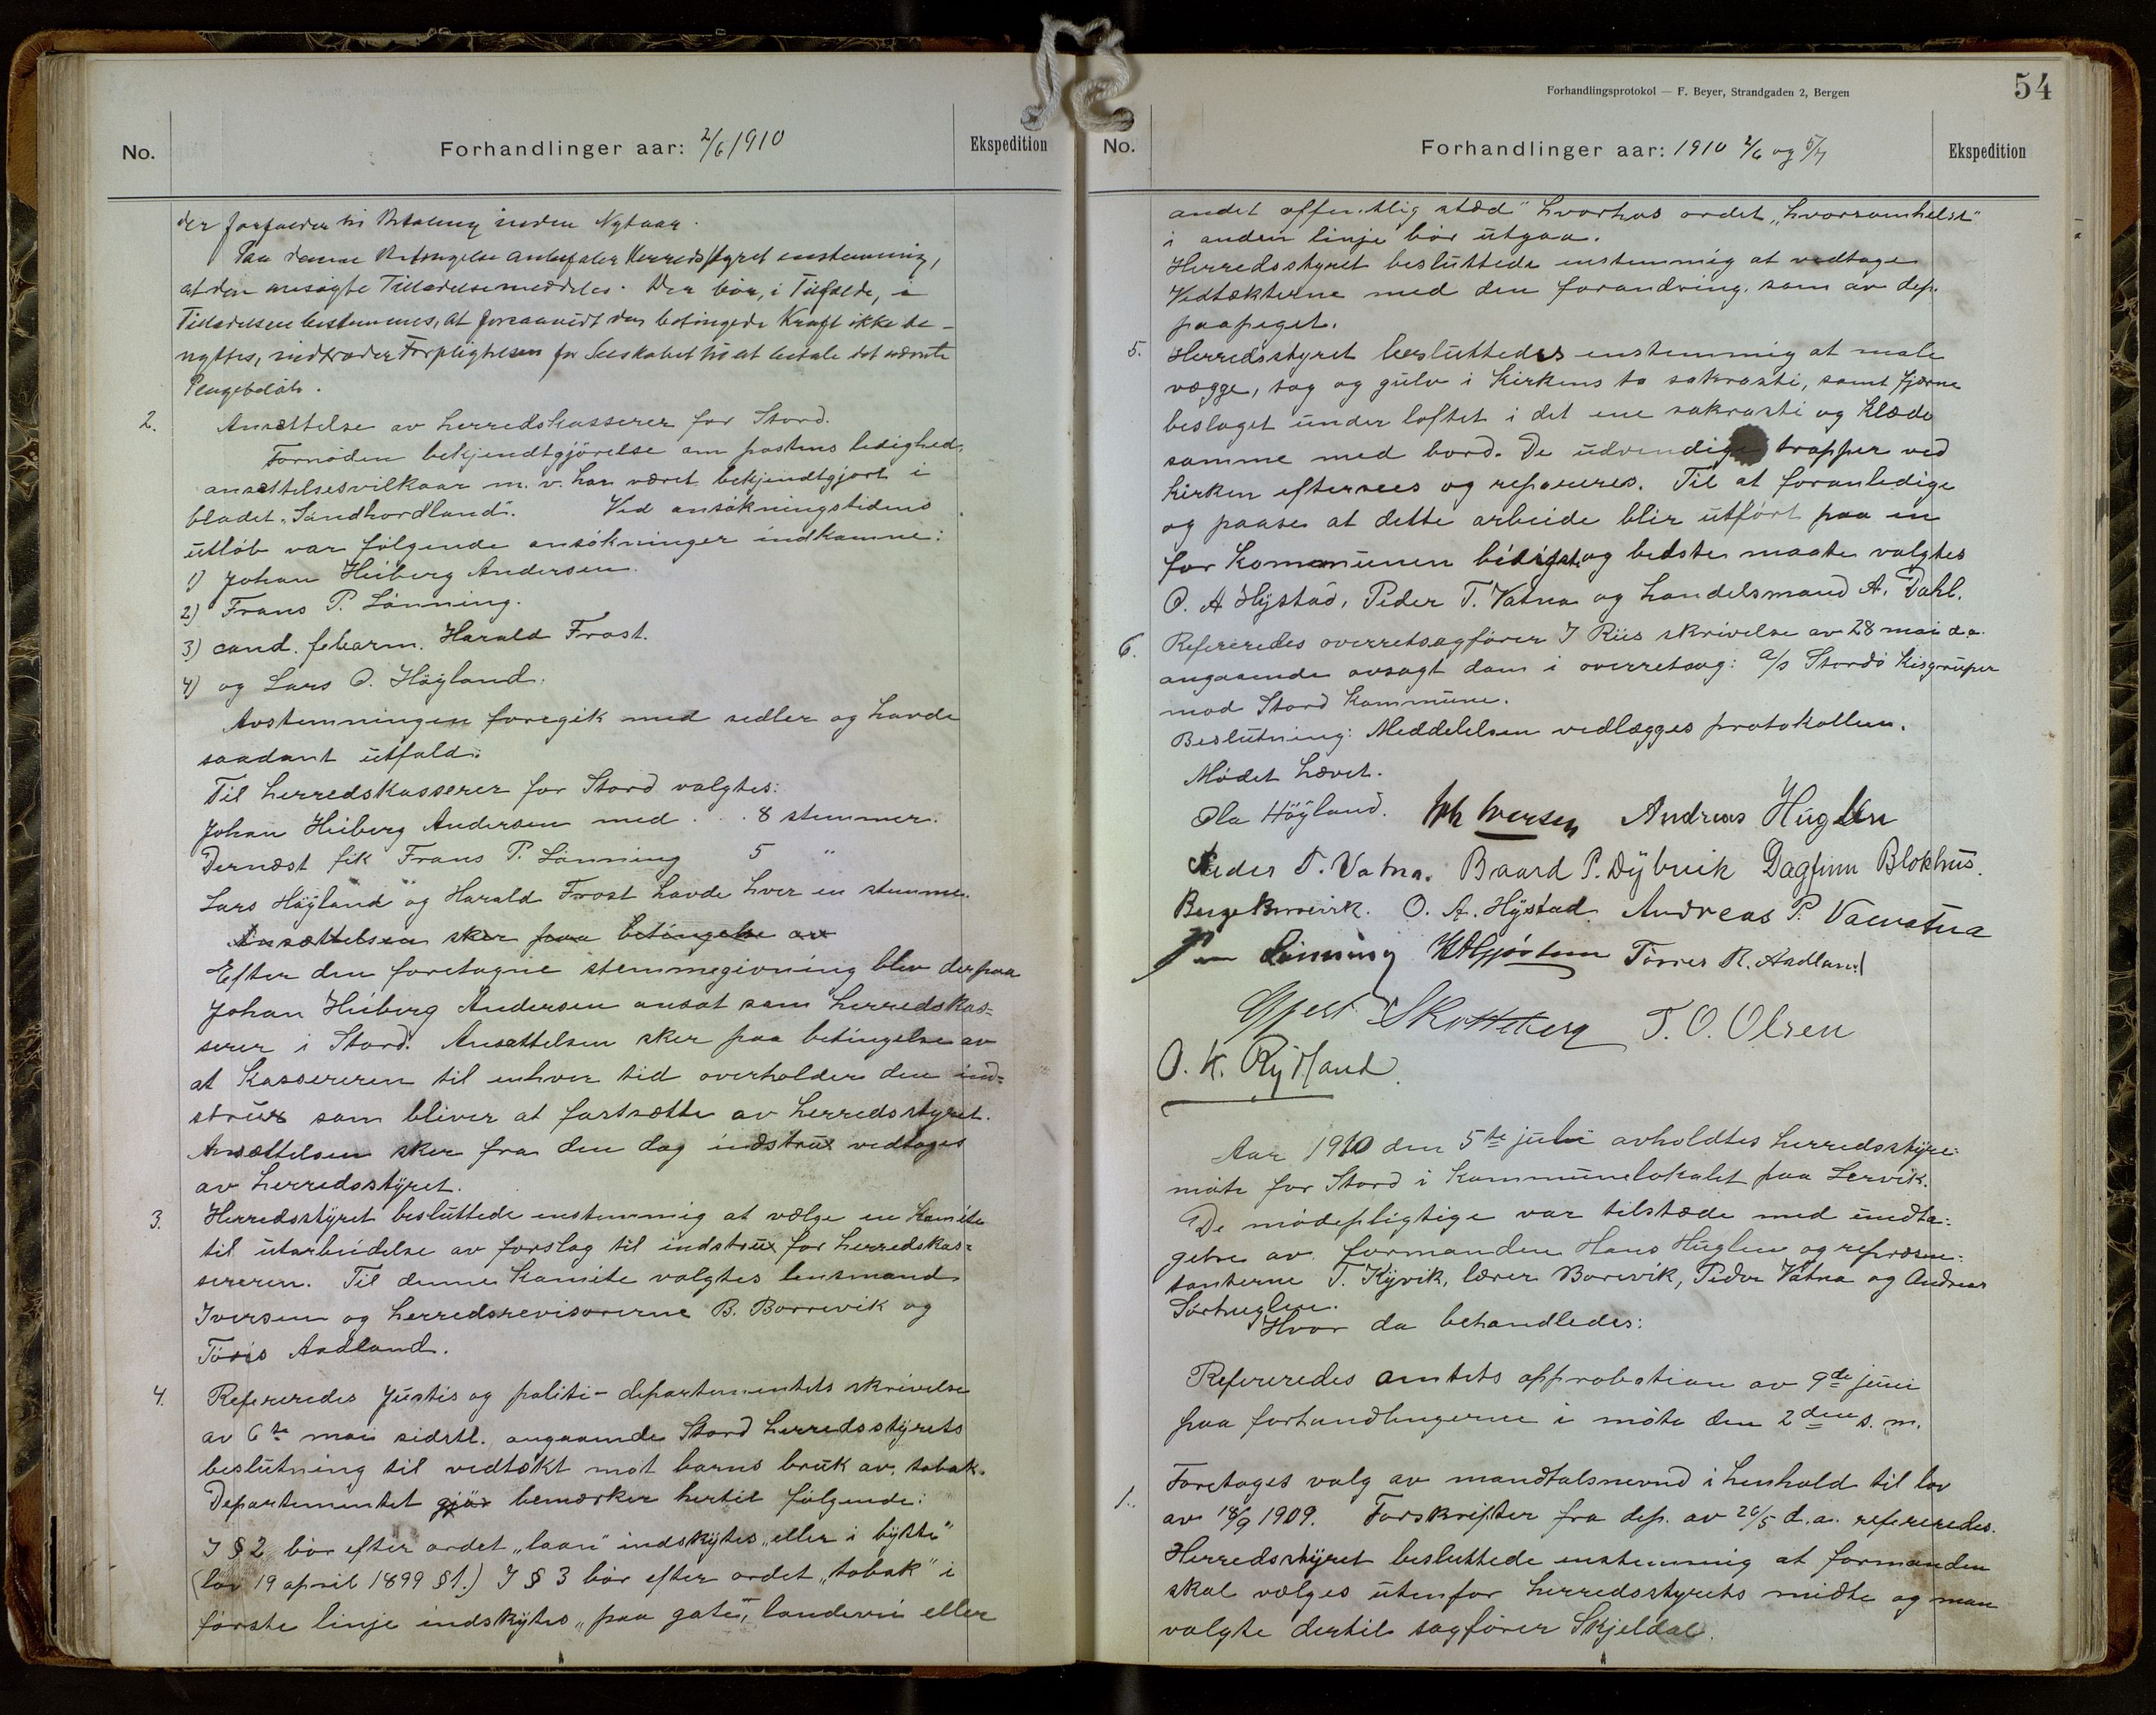 No.
Forhandlinger aar: 2/6 1910
Ekspedition
der forfalder til Betaling inden Nytaar.
Paa denne Betingelse anbefaler Herredsstyret enstemmig,
at den ansøgte Tilladelse meddeles. Der bør, i Tilfælde, i
Tilladelsen bestemmes, at forsaavidt den betingede Kraft ikke be-
nyttes, indtræder Forpligtelsen for Selskabet til at betale det nævnte
Pengebeløb.
2. Ansættelse av herredskasserer for Stord.
Fornöden bekjendtgjörelse om postens ledighed,
ansættelsesvilkaar m. v. har været bekjendtgjort i
bladet „Sundhordland“. Ved ansökningstidens
utlöb var fölgende ansökninger indkomne:
1) Johan Heiberg Andersen.
2) Frans P. Lönning.
3) cand. feharm. Harald Frost.
4) og Lars O. Höyland.
Avstemningen foregik med sedler og havde
saadant utfald:
Til herredskasserer for Stord valgtes:
Johan Heiberg Andersen med . . 8 stemmer.
Dernæst fik Frans P. Lönning 5 "
Lars Höyland og Harald Frost havde hver en stemme.
Ansættelsen sker paa betingelse av
Efter den foretagne stemmegivning blev derpaa
Johan Heiberg Andersen ansat som herredskas=
serer i Stord. Ansættelsen sker paa betingelse av
at kassereren til enhver tid overholder den ind=
strux som bliver at fastsætte av herredsstyret.
Ansættelsen sker fra den dag indstrux vedtages
av herredsstyret.
3. Herredsstyret besluttede enstemmig at vælge en komite
til utarbeidelse av forslag til indstrux for herredskas=
sereren. Til denne komite valgtes lensmand
Iversen og herredsrevisorerne B. Borrevik og
Töris Aadland.
4. Refereredes justis og politi-departementets skrivelse
av 6te mai sidstl. angaaende Stord herredsstyrets
beslutning til vedtækt mot barns bruk av tobak.
Departementet gjör bemærker hertil fölgende:
I § 2 bör efter ordet „laan“ indskytes „eller i bytte“
(lov 19 april 1899 § 1.) I § 3 bör efter ordet „tobak“ i
förste linje indskytes „paa gate“, landevei eller
Forhandlingsprotokol — F. Beyer, Strandgaden 2, Bergen
54
No.
Forhandlinger aar: 1910 2/6 og 5/7
Ekspedition
andet offentlig sted“ hvorhos ordet „hvorsomhelst“
i anden linje bör utgaa.
Herredsstyret besluttede enstemmig at vedtage
Vedtækterne med den forandring som av dep.
paapeget.
5. Herredsstyret besluttedes enstemmig at male
vægge, tag og gulv i Kirkens to sakrasti, samt fjerne
beslaget under loftet i det ene sakrasti og klæde
samme med bord. De udvendige trapper ved
kirken eftersees og repareres. Til at foranledige
og paase at dette arbeide blir utfört paa en
for kommunen billigst og bedste maate valgtes
O. A Hystad, Peder T. Vatna og handelsmand A. Dahl.
6. Refereredes overretsagförer J Riis skrivelse av 28 mai d.a.
angaaende avsagt dom i overretsag: A/s Stordö Kisgruper
mod Stord Kommune.
Beslutning: Meddelelsen vedlægges protokollen.
Mödet hævet.
Ola Höyland. Joh Iversen Andreas Huglen
Peder T. Vatna. Baard P. Dybvik Dagfinn Blokhus.
Berge Borrevik. O. A. Hystad Andreas P. Valvatna
Lönning Törres R. Aadland
Gjert Skottsberg T. O. Olsen
O. K. Rydland
Aar 1910 den 5te juli avholdtes herredsstyre=
möte for Stord i kommunelokalet paa Lervik.
De mödepligtige var tilstede med undta=
gelse av formanden Hans Huglen og repræsen=
tanterne T. Kyvik, lærer Borevik, Peder Vatna og Andreas
Sörhuglen.
Hvor da behandledes:
Refereredes amtets approbation av 9de juni
paa forhandlingerne i möte den 2den s. m.
1. Foretages valg av mandtalsnevnd i henhold til lov
av 18/9 1909. Forskrifter fra dep. av 26/5 d.a. refereredes.
Herredsstyret besluttede enstemmig at formanden
skal vælges utenfor herredsstyrets midte og man
valgte dertil sagförer Skjeldal.